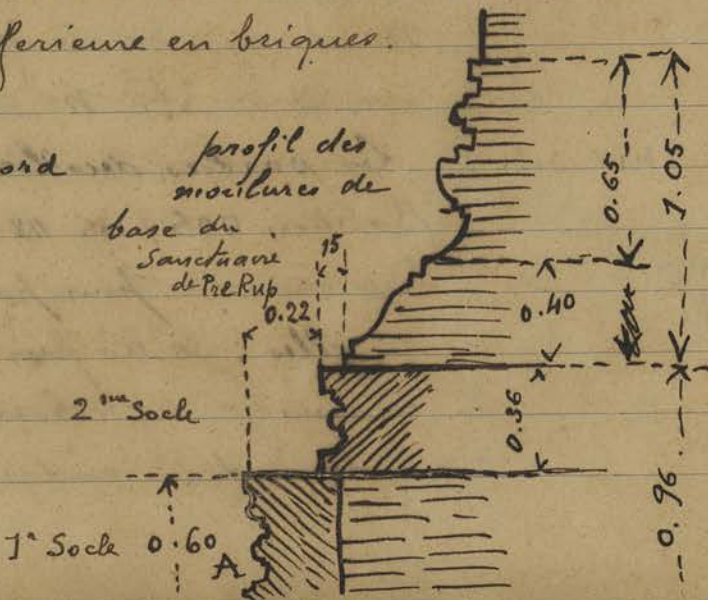 ferieure en briques.
ord
profil des
moulures de
base du
Sanctuaire
de Pre Rup
15
0.22
0.65
1.05
0.40
2me Socle
0.36
0.96
1e Socle 0.60
A